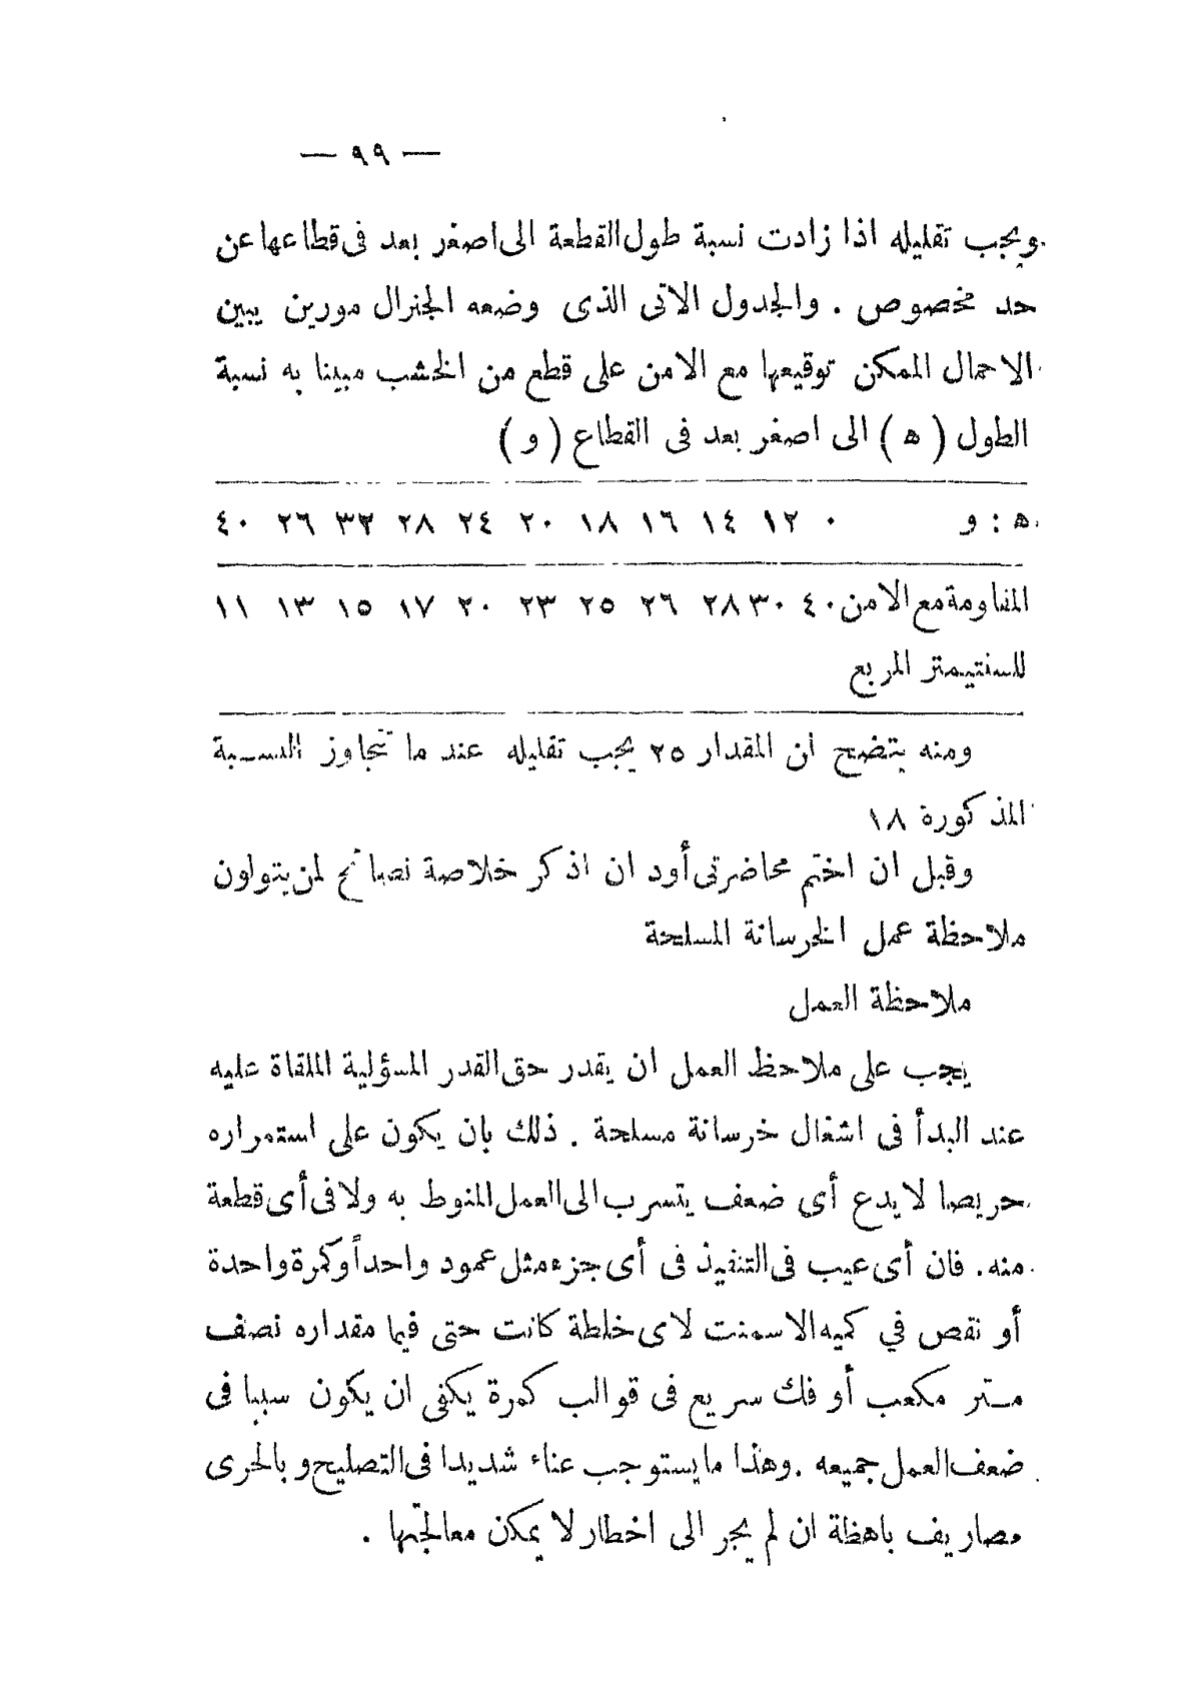 — ٩٩ —
ويجب تقليله اذا زادت نسبة طول القطعة الى اصغر بعد فى قطاعها عن
حد مخصوص . والجدول الاتى الذى وضعه الجنرال مورين يبين
الاحمال الممكن توقيعها مع الامن على قطع من الخشب مبينا به نسبة
الطول ( ھ ) الى اصغر بعد فى القطاع ( و )
ھ : و ٠ ١٢ ١٤ ١٦ ١٨ ٢٠ ٢٤ ٢٨ ٣٢ ٢٦ ٤٠
المقاومة مع الامن ٤٠ ٣٠ ٢٨ ٢٦ ٢٥ ٢٣ ٢٠ ١٧ ١٥ ١٣ ١١
للسنتيمتر المربع
ومنه يتضح ان المقدار ٢٥ يجب تقليله عند ما تتجاوز النسبة
المذكورة ١٨
وقبل ان اختم محاضرتى أود ان اذكر خلاصة نصائح لمن يتولون
ملاحظة عمل الخرسانة المسلحة
ملاحظة العمل
يجب على ملاحظ العمل ان يقدر حق القدر المسؤلية الملقاة عليه
عند البدأ فى اشغال خرسانة مسلحة . ذلك بان يكون على استمراره
حريصا لا يدع أى ضعف يتسرب الى العمل المنوط به ولا فى أى قطعة
منه . فان أى عيب فى التنفيذ فى أى جزء مثل عمود واحد أو كمرة واحدة
أو نقص في كميه الاسمنت لاى خلطة كانت حتى فيما مقداره نصف
متر مكعب أو فك سريع فى قوالب كمرة يكفى ان يكون سببا فى
ضعف العمل جميعه . وهذا ما يستوجب عناء شديدا فى التصليح و بالحرى
مصاريف باهظة ان لم يجر الى اخطار لا يمكن معالجتها .